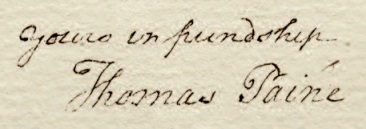 yours in friendship
Thomas Paine